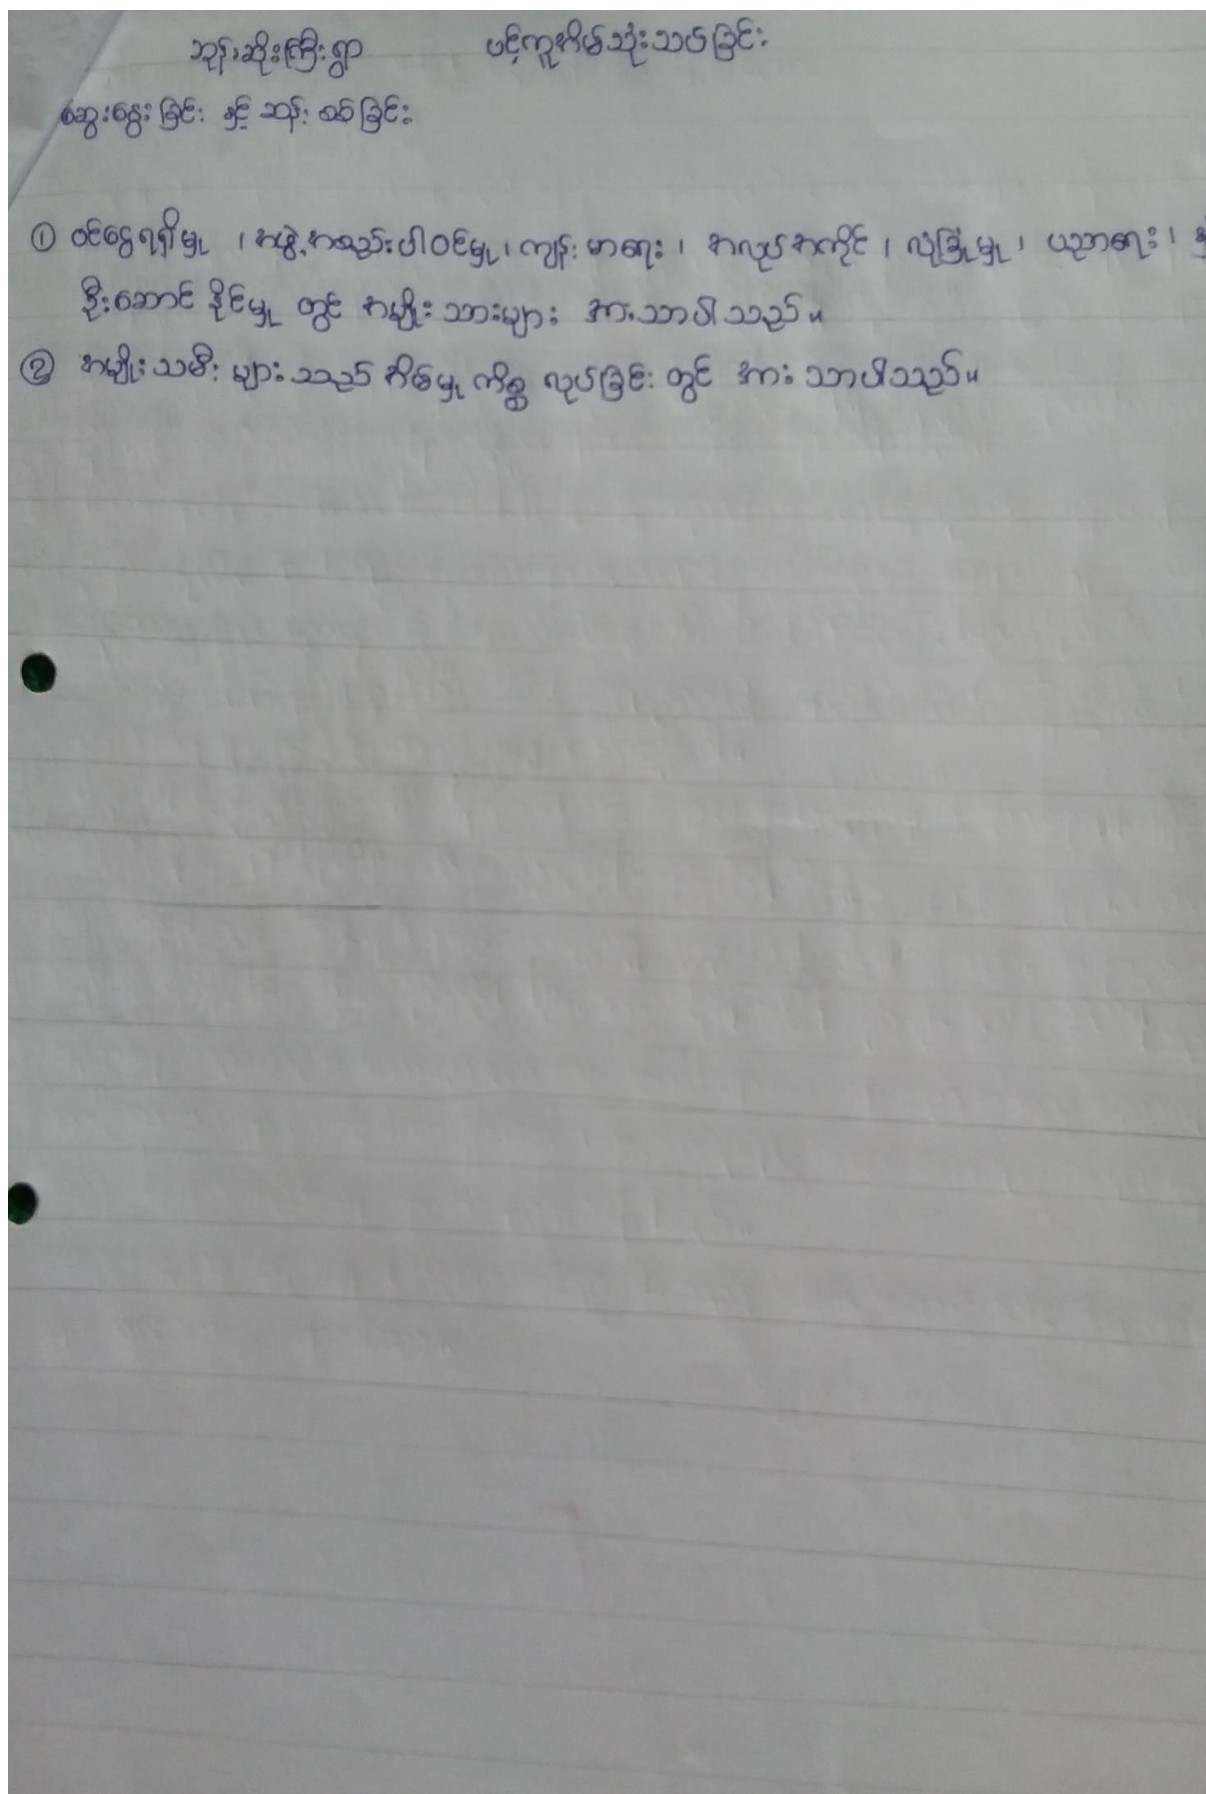 ဘုန်းဆိုးကြီးရွာ ပင့်ကူအိမ်သုံးသပ်ခြင်း
ဆွေးနွေးခြင်း နှင့် ဆန်းစစ်ခြင်း
① ဝင်ငွေရရှိမှု ၊ အဖွဲ့အစည်းပါဝင်မှု ၊ ကျန်းမာရေး ၊ အလုပ်အကိုင် ၊ လုံခြုံမှု ၊ ပညာရေး ၊
ဦးဆောင်နိုင်မှု တွင် အမျိုးသားများ အားသာပါသည်။
② အမျိုးသမီးများသည် အိမ်မှုကိစ္စ လုပ်ခြင်းတွင် အားသာပါသည်။